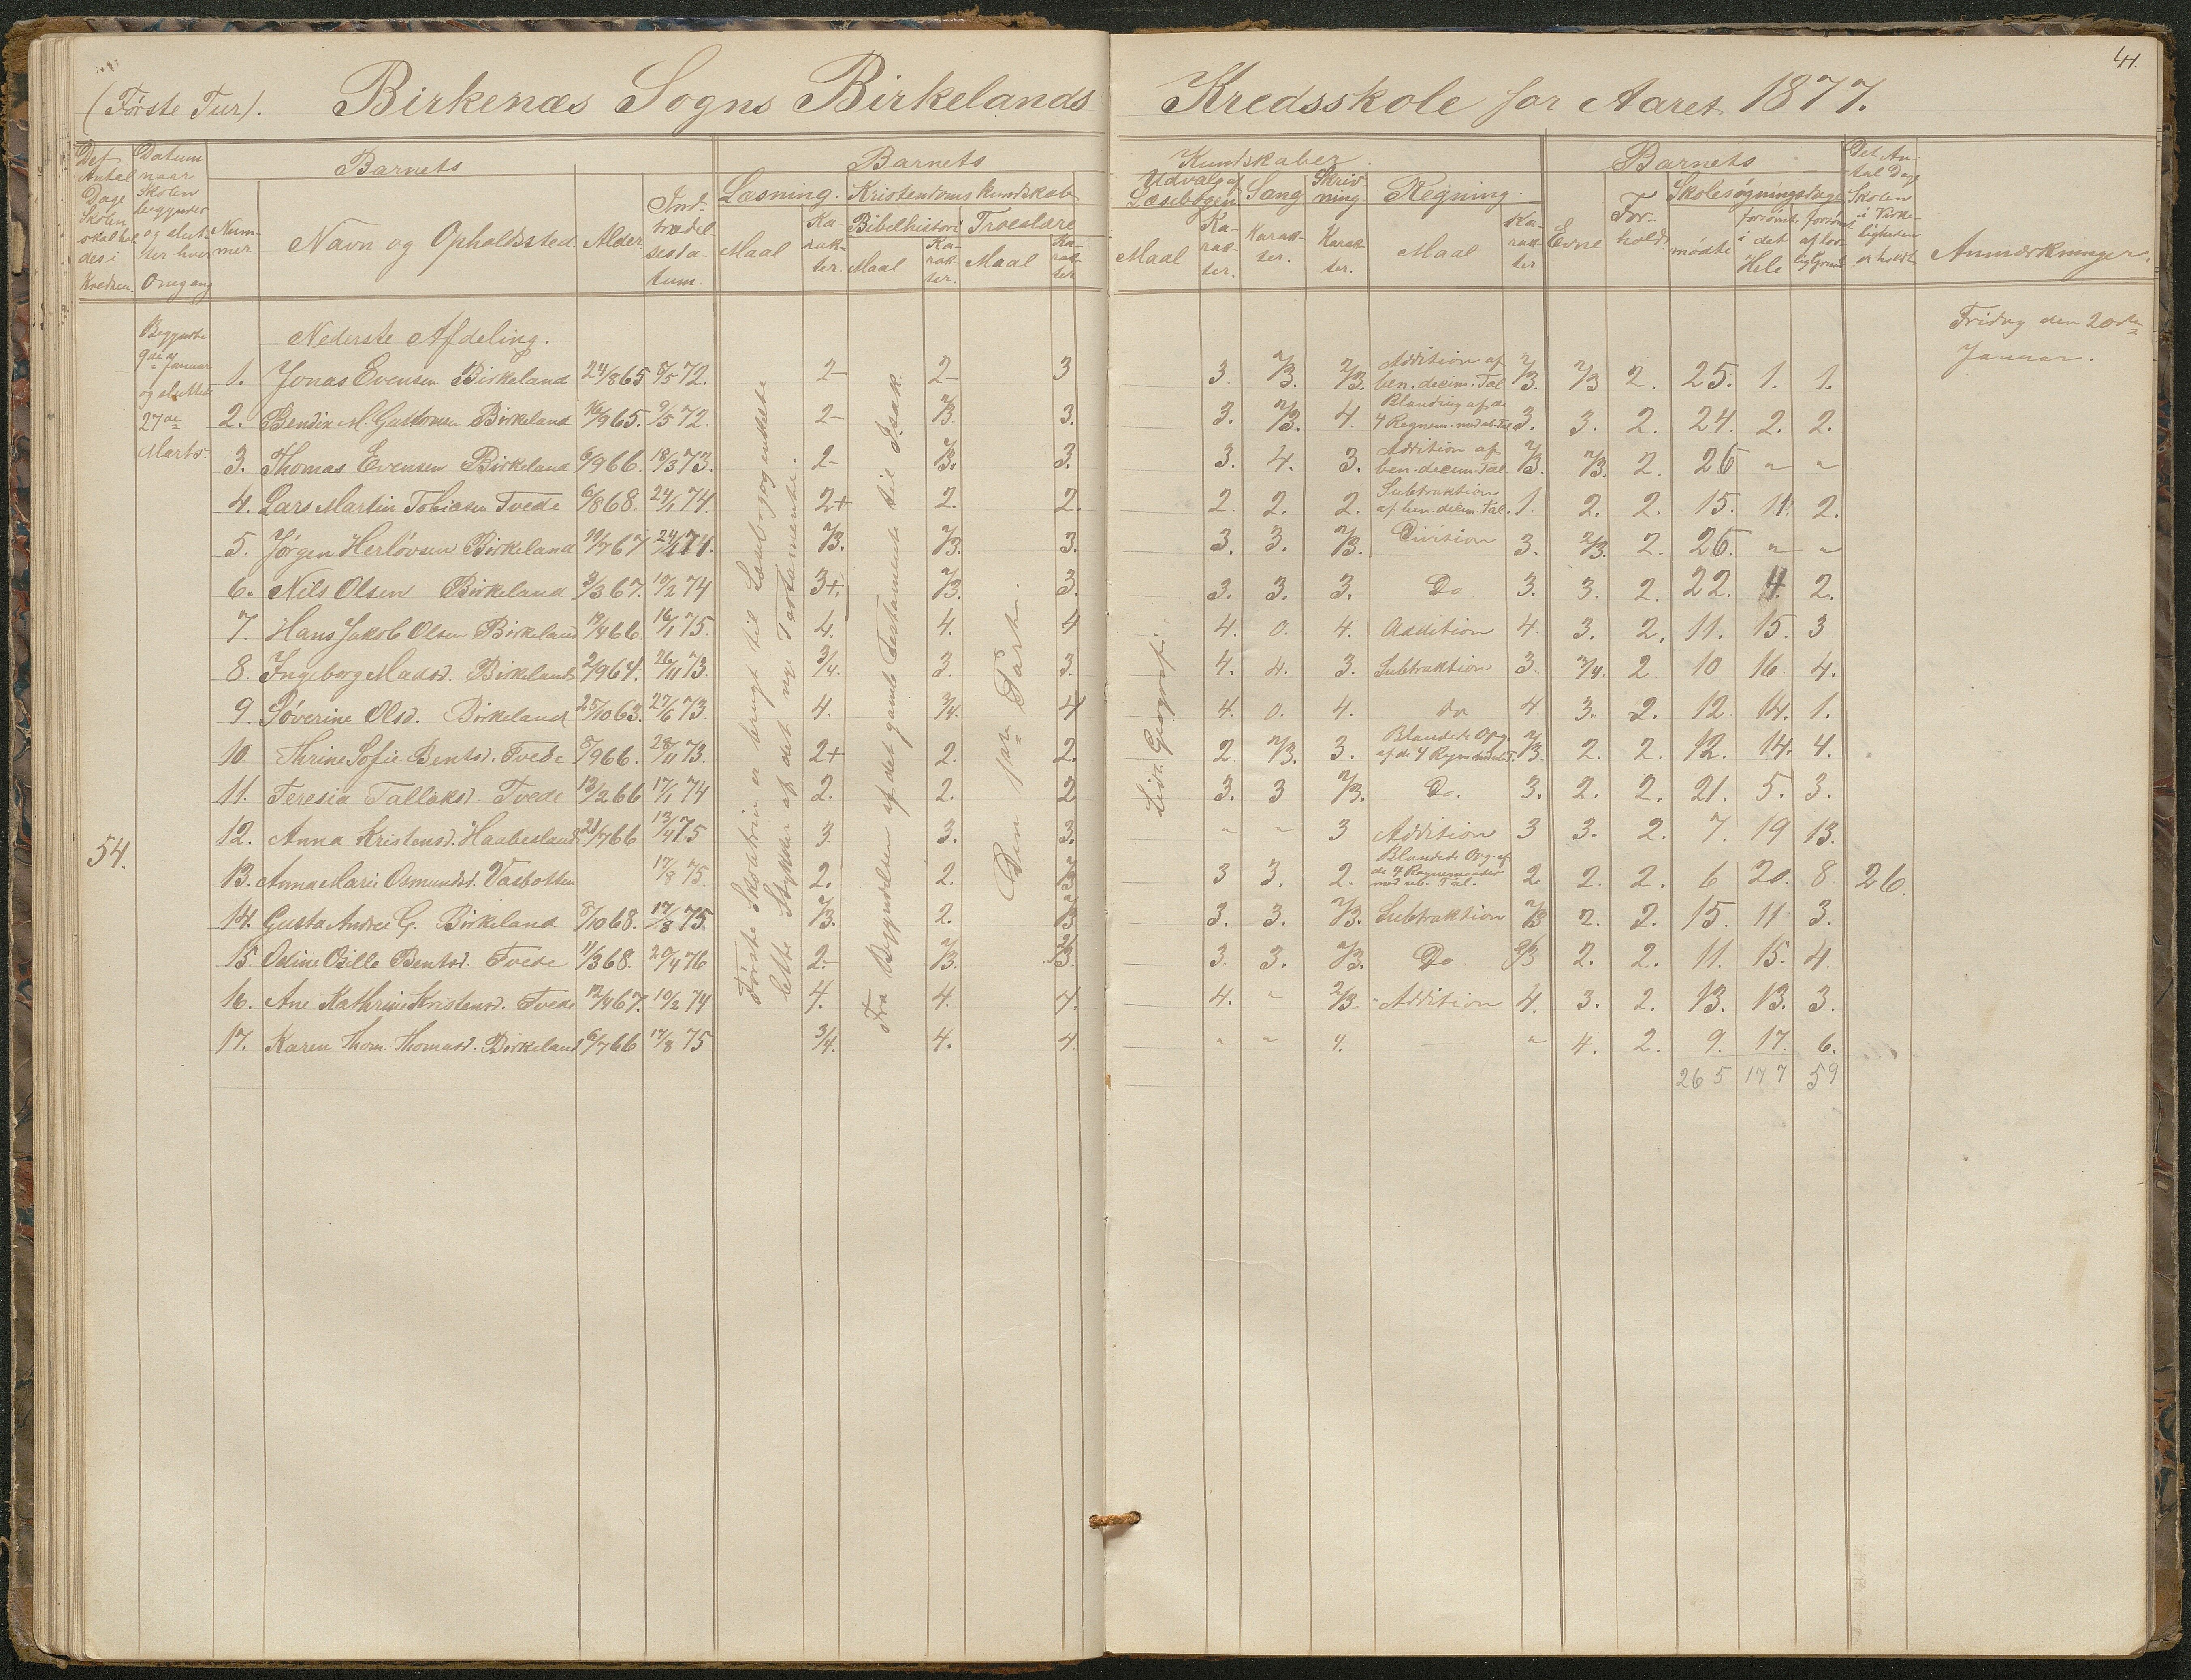 41.
(Første Tur). Birkenæs Sogns Birkelands Kredsskole for Aaret 1877.
Det Antal Dage Skolen skal holdes i Kredsen.
Datum naar Skolen begynder og slutter hver Omgang
Barnets
Nummer
Navn og Opholdssted
Alder
Indtrædelsesdatum.
Barnets Kundskaber.
Læsning.
Maal
Karakter.
Kristendomskundskab
Bibelhistori
Maal
Karakter.
Troeslære
Maal
Karakter
Udvalg af Læsebogen
Maal
Karakter.
Sang
Karakter.
Skrivning.
Karakter.
Regning.
Maal
Karakter
Barnets
Evne
Forhold.
Skolesøgningsdage
mødte
forsømte i det Hele
forsømt af lovlig Grund
Det Antal Dage Skolen i Virkeligheden er holdt
Anmærkninger.
54.
Begyndte
9de Januar
og sluttede
27de
Marts.
Nederste Afdeling.
Første Skoletrin er brugt til Læsebog og enkelte
lette Stykker af det nye Testamente.
Fra Begyndelsen af det gamle Testamente til Isak.
Den 1ste Part.
Lidt Geografi.
1. Jonas Evensen Birkeland 24/8 65 8/5 72. 2- 2- 3 3. 2/3. 2/3. Addition af ben. decim. Tal 2/3. 2/3 2. 25. 1. 1.
2. Bendix M. Guttormsen Birkeland 16/9 65. 9/5 72. 2- 2/3. 3. 3. 2/3. 4. Blanding af de 4 Regnem. med ub. Tal 3. 3. 2. 24. 2. 2.
3. Thomas Evensen Birkeland 6/9 66. 18/3 73. 2- 2/3. 3. 3. 4. 3. Addition af ben. decim. Tal 2/3. 2/3. 2. 26 " "
4. Lars Martin Tobiasen Tvede 6/8 68. 24/1 74. 2+ 2. 2. 2. 2. 2. Subtraktion af ben. decim. Tal. 1. 2. 2. 15. 11. 2.
5. Jørgen Herløvsen Birkeland 29/7 67 24/4 74. 2/3. 2/3. 3. 3. 3. 2/3. Division 3. 2/3. 2. 26. " "
6. Nils Olsen Birkeland 3/3 67. 10/2 74 3+. 2/3. 3. 3. 3. 3. Do 3. 3. 2. 22. 4. 2.
7. Hans Jakob Olsen Birkeland 19/4 66. 16/1 75. 4. 4. 4 4. 0. 4. Addition 4. 3. 2. 11. 15. 3
8. Ingeborg Madsd. Birkeland 2/9 64. 26/11 73. 3/4. 3. 3. 4. 4. 3. Subtraktion 3. 3/4. 2. 10 16 4.
9. Søverine Olsd. Birkeland 25/10 63. 27/6 73. 4. 3/4. 4 4. 0. 4. do 4 3. 2. 12. 14. 1.
10 Thrine Sofie Bentsd. Tvede 8/9 66. 28/11 73. 2+ 2. 2. 2. 2/3. 3. Blandede Opg. af de 4 Regnm. 2/3. 2. 2. 12. 14. 4.
11. Teresia Tallaksd. Tvede 13/2 66 17/1 74 2. 2. 2 3. 3 2/3. Do. 3. 2. 2. 21. 5. 3.
12. Anna Kristensd. Haabesland 21/7 66 13/4 75 3. 3. 3. " " 3 Addition 3 3. 2. 7. 19 13.
13. Anna Marie Osmundsd. Vasbotten 17/8 75. 2. 2. 2/3 3 3. 2. Blandede Opg. af de 4 Regnemaader med ub. Tal. 2 2. 2. 6 20. 8. 26.
14. Gusta Andrea G. Birkeland 8/10 68. 17/8 75 2/3. 2. 2/3 3. 3. 2/3. Subtraktion 2/3 2. 2. 15. 11 3.
15. Oline Bentsd. Tvede 11/3 68. 20/4 76 2- 2/3. 2/3. 3. 3. 2/3. Do 2/3 2. 2. 11. 15. 4.
16. Ane Kathrine Kristensd. Tvede 12/4 67. 10/2 74 4. 4. 4. 4. " 2/3. Addition 4. 3. 2. 13. 13. 3.
17. Karen Thom. Thomasd. Birkeland 6/7 66 17/8 75 3/4. 4. 4 " " 4. — " 4. 2. 9. 17. 6.
265 177 59
Fridag den 20de
Januar.